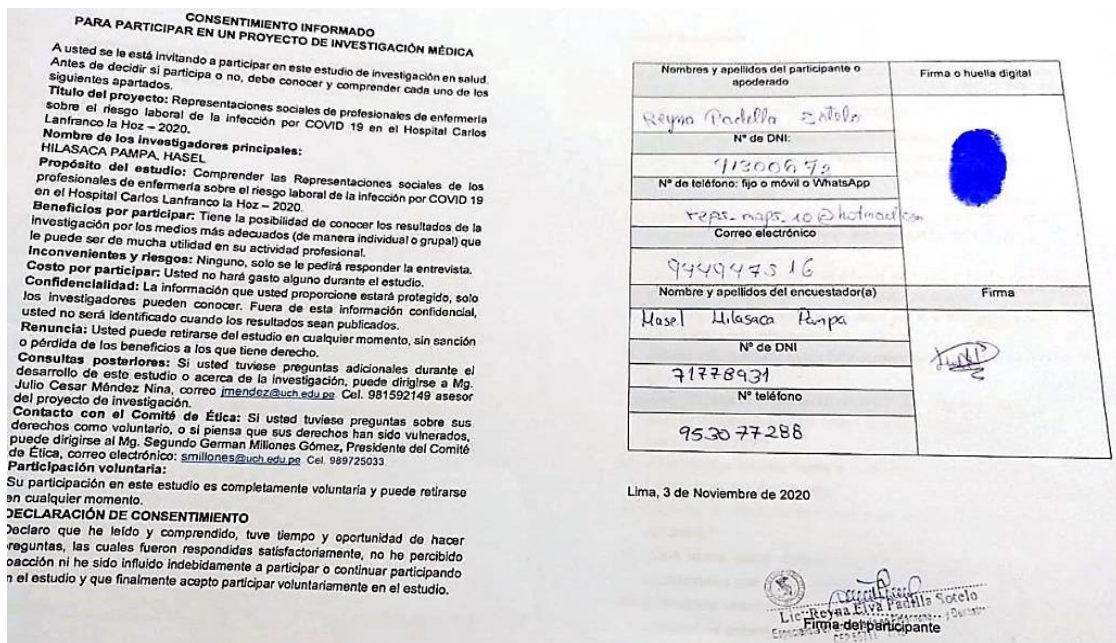 CONSENTIMIENTO INFORMADO
PARA PARTICIPAR EN UN PROYECTO DE INVESTIGACIÓN MÉDICA
A usted se le está invitando a participar en este estudio de investigación en salud.
Antes de decidir si participa o no, debe conocer y comprender cada uno de los
siguientes apartados.
Título del proyecto: Representaciones sociales de profesionales de enfermería
sobre el riesgo laboral de la infección por COVID 19 en el Hospital Carlos
Lanfranco la Hoz – 2020.
Nombre de los investigadores principales:
HILASACA PAMPA, HASEL
Propósito del estudio: Comprender las Representaciones sociales de los
profesionales de enfermería sobre el riesgo laboral de la infección por COVID 19
en el Hospital Carlos Lanfranco la Hoz – 2020.
Beneficios por participar: Tiene la posibilidad de conocer los resultados de la
investigación por los medios más adecuados (de manera individual o grupal) que
le puede ser de mucha utilidad en su actividad profesional.
Inconvenientes y riesgos: Ninguno, solo se le pedirá responder la entrevista.
Costo por participar: Usted no hará gasto alguno durante el estudio.
Confidencialidad: La información que usted proporcione estará protegido, solo
los investigadores pueden conocer. Fuera de esta información confidencial,
usted no será identificado cuando los resultados sean publicados.
Renuncia: Usted puede retirarse del estudio en cualquier momento, sin sanción
o pérdida de los beneficios a los que tiene derecho.
Consultas posteriores: Si usted tuviese preguntas adicionales durante el
desarrollo de este estudio o acerca de la investigación, puede dirigirse a Mg.
Julio Cesar Méndez Nina, correo jmendez@uch.edu.pe. Cel. 981592149 asesor
del proyecto de investigación.
Contacto con el Comité de Ética: Si usted tuviese preguntas sobre sus
derechos como voluntario, o si piensa que sus derechos han sido vulnerados,
puede dirigirse al Mg. Segundo German Millones Gómez, Presidente del Comité
de Ética, correo electrónico: smillones@uch.edu.pe. Cel. 989725033
Participación voluntaria:
Su participación en este estudio es completamente voluntaria y puede retirarse
en cualquier momento.
DECLARACIÓN DE CONSENTIMIENTO
Declaro que he leído y comprendido, tuve tiempo y oportunidad de hacer
preguntas, las cuales fueron respondidas satisfactoriamente, no he percibido
oacción ni he sido influido indebidamente a participar o continuar participando
n el estudio y que finalmente acepto participar voluntariamente en el estudio.
Nombres y apellidos del participante o
apoderado
Firma o huella digital
Reyna Padilla
N° de DNI:
41300672
N° de teléfono: fijo o móvil o WhatsApp
@hotmail.com
Correo electrónico
944947316
Nombre y apellidos del encuestador(a)
Firma
Hasel Hilasaca Pampa
N° de DNI
71778931
N° teléfono
953077288
Lima, 3 de Noviembre de 2020
Lic. Reyna Elva Padilla Sotelo
Firma del participante